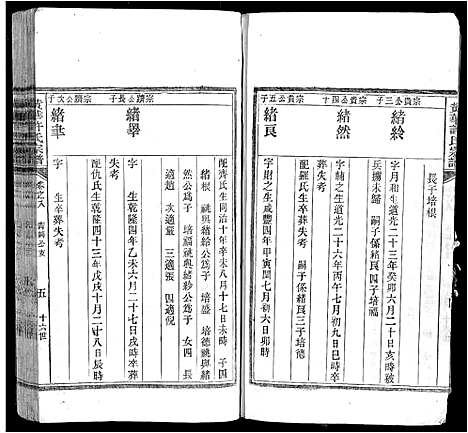 黃華許氏宗譜
長子培根
宗貴公三子
緒紾
字月和生道光二十三年癸卯六月二十日亥時被
兵擄未歸 嗣子係緒良四子培福
宗貴公四子
緒然
字輔之生道光二十六年丙午七月初九日巳時卒
葬失考 嗣子係緒良三子培德
配羅氏生卒葬失考
宗貴公五子
緒良
字財之生咸豐四年甲寅閏七月初六日卯時
配齊氏生同治十年辛未八月十七日未時 子四
緒根 祧與緒紾公爲子 培盛 培德祧與緒
然公爲子 培福祧與緒紾公爲子 女四 長
適趙 次適嚴 三適張 四適倪
宗購公長子
緒舉
字 生乾隆四年乙未六月二十七日戌時卒葬
失考
配仇氏生乾隆四十三年戊戌十月二十八日辰時
宗購公次子
緒聿
字 生卒葬失考
黃華許氏宗譜
卷之八
五
十六世